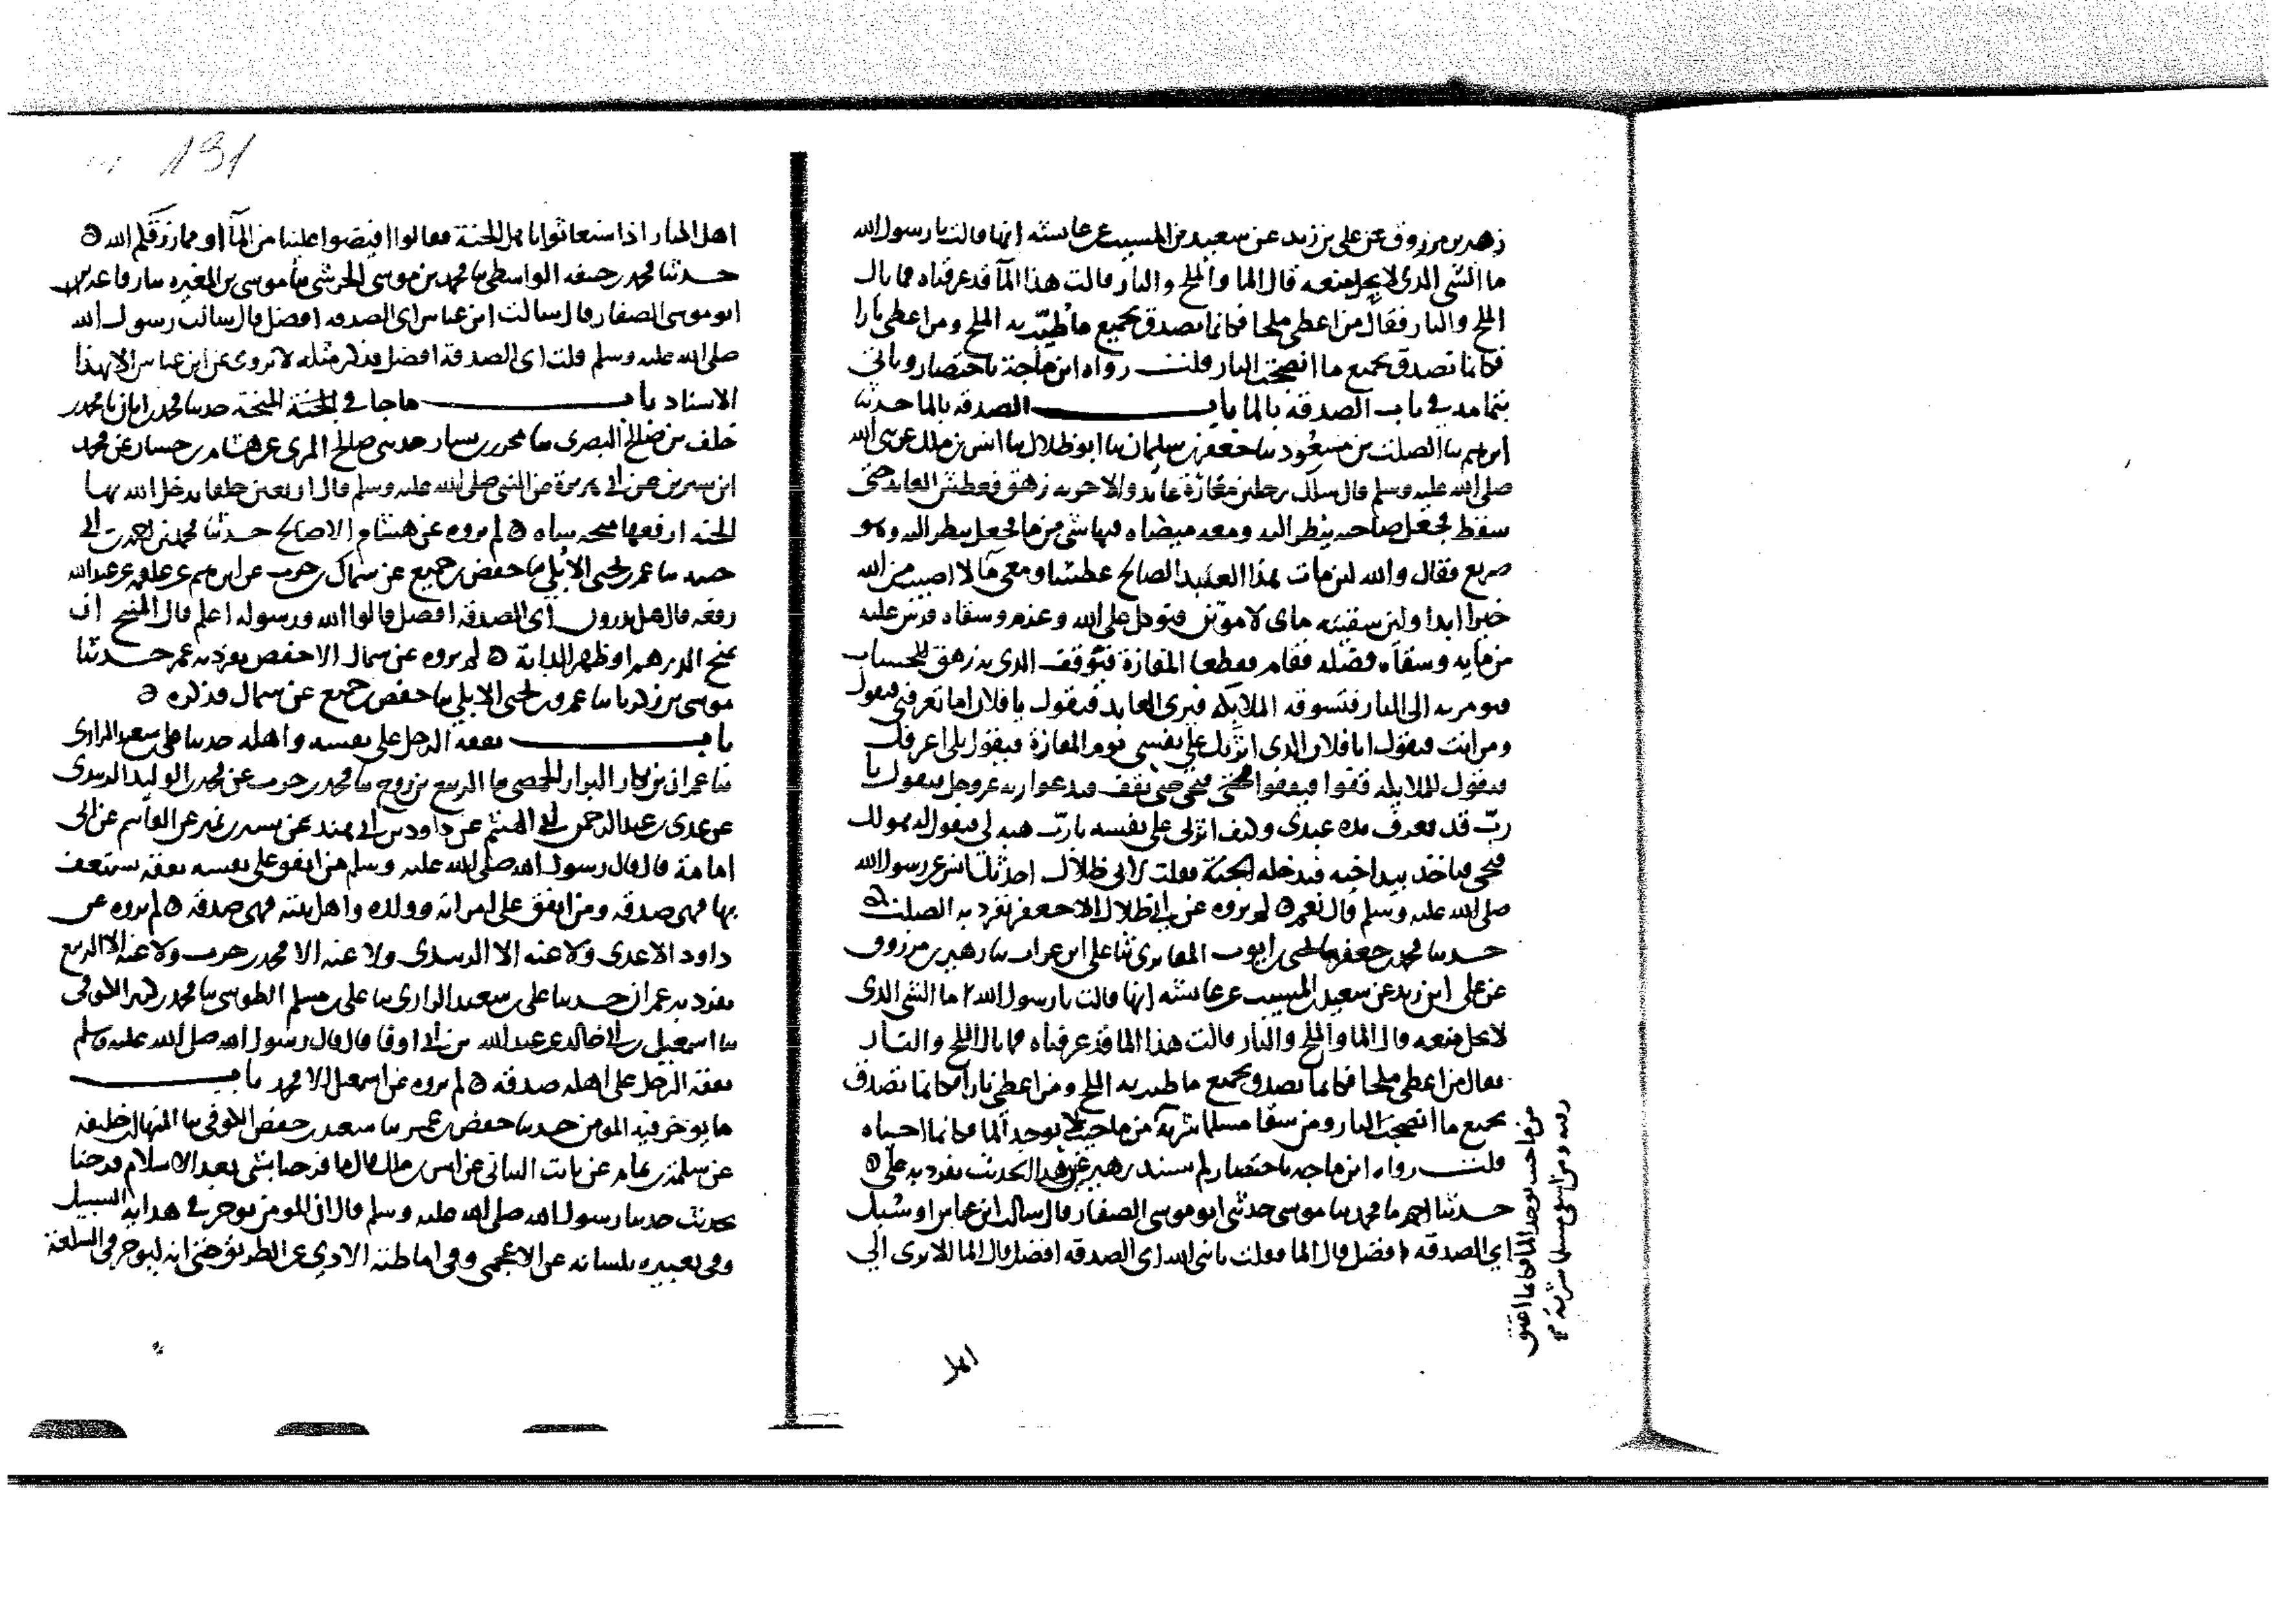 زهير بن مرزوق عن علي بن زيد عن سعيد بن المسيب عن عائشة انها قالت يا رسول الله
ما الشي الذي لا يحل منعه قال الما والملح والنار قالت هذا المآ قد عرفناه فما بال
الملح والنار فقال من اعطى ملحا فكانما تصدق بجميع ما طيّب به الملح ومن اعطى نارا
فكانما تصدق بجميع ما انضجت النار قلت رواه ابن ماجة باختصار وياتي
بتمامه في باب الصدقة بالما باب الصدقة بالما حدثنا
ابرهيم بنا الصلت بن مسعود بنا جعفر بن سليمان بنا ابو ظلال بنا انس بن ملك عن نبي الله
صلى الله عليه وسلم قال سلك رجلين مفازة عابد والاخر به زهق فعطش العابد حتى
سقط فجعل صاحبه ينظر اليه ومعه ميضاه فيها شي من ما فجعل ينظر اليه وهو
صريع فقال والله لين مات هذا العبد الصالح عطشا ومعي مآ لا اصيب من الله
خيرا ابدا ولين سقيته ماي لاموتن فتوكل على الله وعزم وسقاه فرش عليه
من مايه وسقاه فضله فقام فقطعا المفازة فيوقف الذي به زهق للحساب
فيومر به الى النار فتسوقه الملايكة فيرى العابد فيقول يا فلان اما تعرفني فيقول
ومن انت فيقول انا فلان الذي اثرتك على نفسي يوم المفازة فيقول بلى اعرفك
فيقول للملايكه قفوا فيقفوا فيجي حتى يقف فيدعوا ربه عز وجل فيقول يا
ربّ قد تعرف يده عندي وكيف اثرني على نفسه يا ربّ هبه لي فيقول له هو لك
فيجي فياخذ بيد اخيه فيدخله الجنة فقلت لابي ظلال احدثك انس عن رسول الله
صلى الله عليه وسلم قال نعم ه لم يروه عن ابي ظلال الا جعفر تفرد به الصلت ه
حدثنا محمد بن جعفر بنا يحيى بن ايوب المقابري ثنا علي ابن غراب بنا زهير بن مرزوق
عن علي ابن زيد عن سعيد بن المسيب عن عائشه انها قالت يا رسول الله ما الشي الذي
لا يحل منعه قال الما والملح والنار قالت هذا الما قد عرفناه فما بال الملح والنار
فقال من اعطى ملحا فكانما تصدق بجميع ما طيب به الملح ومن اعطى نارا فكانما تصدق
بجميع ما انضجت النار ومن سقا مسلما شربة من ما حيث لا يوجد الما فكانما احياه
قلت رواه ابن ماجه باختصار لم يسند زهير غير هذا الحديث تفرد به علي ه
حدثنا احمد بنا محمد بنا موسى حدثني ابو موسى الصفار قال سالت ابن عباس او سُيل
اي الصدقه افضل قال الما فقلت يا نبي الله اي الصدقه افضل قال الما الا ترى الي
رقبه ومن اسقى مسلما شربة
من ما حيث يوجد الما فكانما اعتق
اهل
131
اهل النار اذا استغاثوا باهل الجنة فقالوا افيضوا علينا من المآ او مما رزقكم الله ه
حدثنا محمد بن حنيفه الواسطي بنا محمد بن موسى الحرشي بنا موسى بن المغيره بنا
ابو موسى الصفار قال سالت ابن عباس اي الصدقه افضل قال سالت رسول الله
صلى الله عليه وسلم قلت اى الصدقة افضل فذكر مثله لا يروى عن ابن عباس الا بهذا
الاسناد باب ما جا في المنحة حدثنا محمد بن ابان بنا محمد بن
خلف بن صالح البصري بنا سيار حدثني صالح المري عن هشام بن حسان عن محمد
ابن سيرين عن ابي هريرة عن النبي صلى الله عليه وسلم قال اربعين خلقا يدخل الله بها
الجنه ارفعها منحه شاه ه لم يروه عن هشام الا صالح حدثنا محمد بن
بنا عمر بن يحيى الأبلي بنا حفص بن جميع عن سماك بن حرب عن ابرهيم عن علقمه عن عبد الله
رفعه قال هل تدرون اى الصدقه افضل قالوا الله ورسوله اعلم قال المنيح ان
يمنح الدرهم او ظهر الدابة ه لم يروه عن سماك الا حفص تفرد به عمر حدثنا
موسى بن زكريا بنا عمرو بن يحيى الابلي بنا حفص بن جميع عن سماك فذكره ه
باب نفقة الرجل على نفسه واهله حدثنا علي بن سعيد الرازي
بنا عمران بن بكار البراد الحمصي بنا الربيع بن روح بنا محمد بن حرب عن محمد بن الوليد الزبيدي
عن عدي بن عبد الرحمن ابي الهيثم عن داود بن ابي هند عن بسر بن نمير عن القاسم عن ابي
امامة قال قال رسول الله صلى الله عليه وسلم من انفق على نفسه نفقة يستعف
بها فهي صدقه ومن انفق على امراته وولده واهل بيته فهي صدقه ه لم يروه عن
داود الا عدي ولا عنه الا الزبيدي ولا عنه الا محمد بن حرب ولا عنه الا الربيع
تفرد به عمران حدثنا علي بن سعيد الرازي بنا علي بن مسلم الطوسي بنا محمد بن كثير الكوفي
بنا اسمعيل بن ابي خالد عن عبد الله بن ابي اوفا قال قال رسول الله صلى الله عليه وسلم
نفقة الرجل على اهله صدقه ه لم يروه عن اسمعيل الا محمد باب
ما يوجر فيه المومن حدثنا حفص بن عمر بنا سعد بن حفص الكوفي بنا المنهال بن خليفه
عن سلمة بن تمام عن ثابت البناني عن انس بن ملك قال ما فرحنا بشي بعد الاسلام فرحنا
بحديث حدثنا رسول الله صلى الله عليه وسلم قال ان المومن يوجر في هدايه السبيل
وفي تعبيره بلسانه عن الاعجمي وفي اماطته الاذي عن الطريق حتى انه ليوجر في السلعة